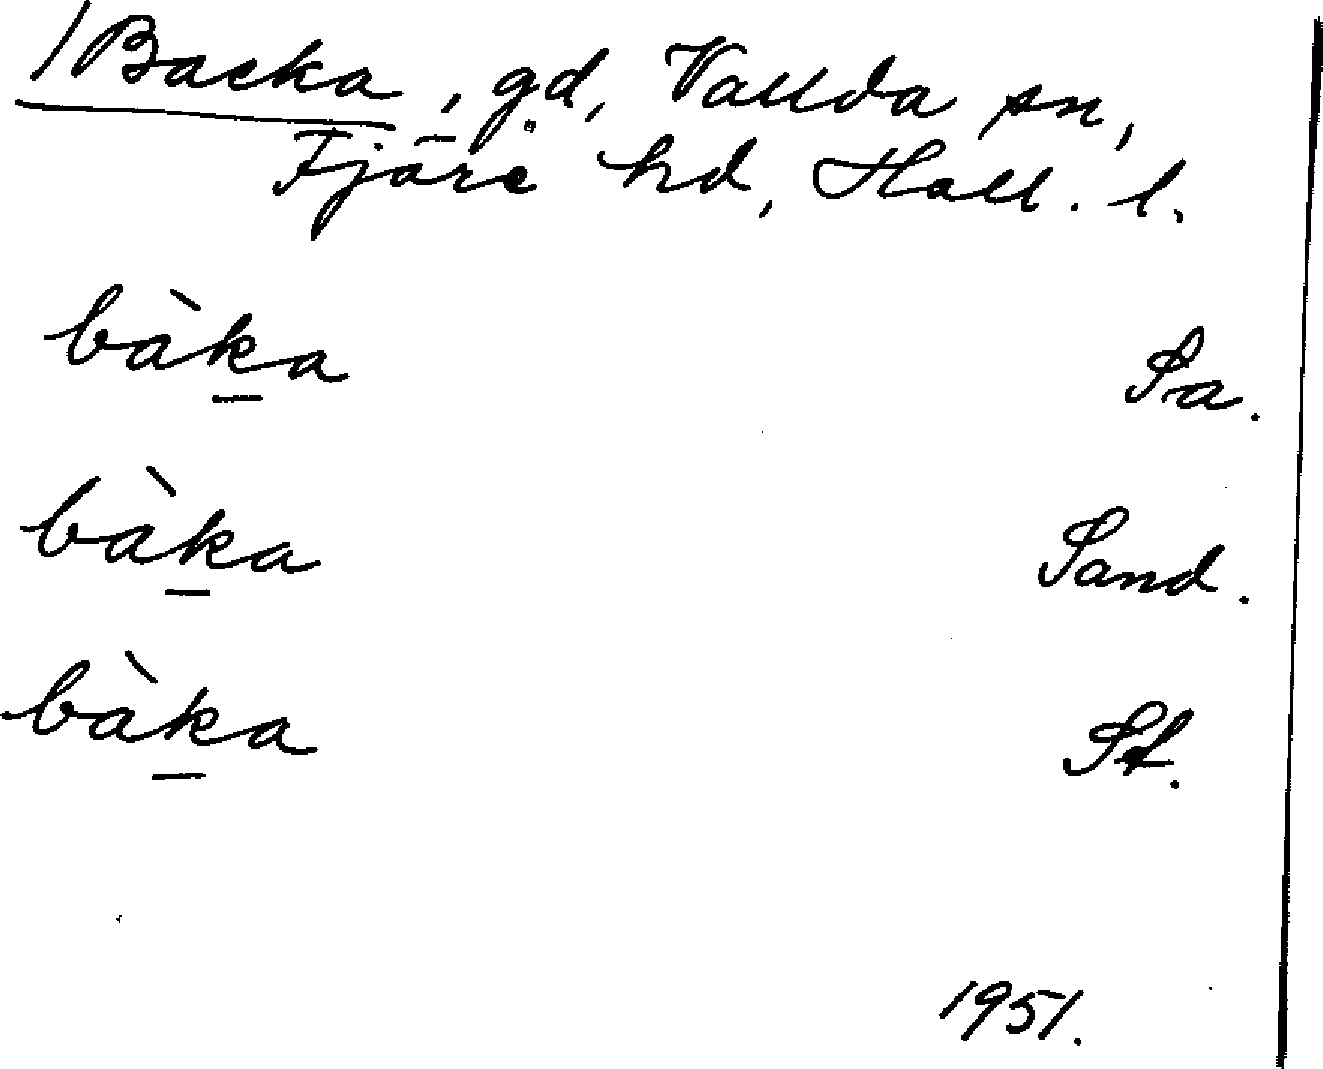 /Backa, gd, Vallda sn,
Fjäre hd, Hall. l.
bàk̲a Sa.
bàk̲a Sand.
bàk̲a St.
1951.